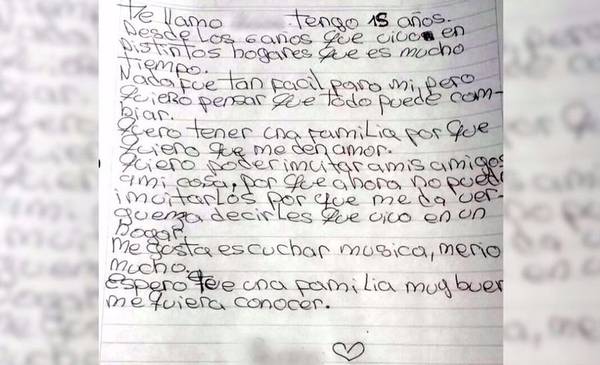 Te llamo tengo 15 años.
Desde los 6 años que vivo en
Distintos hogares que es mucho
Tiempo.
Nada fue tan facil para mi, pero
quiero pensar que todo puede cam-
biar.
quero tener una familia por que
quiero que me den amor.
quiero poder invitar a mis amigos
a mi casa, por que ahora no puedo
invitarlos por que me da ver-
guenza decirles que vivo en un
hogar.
me gusta escuchar musica, me rio
mucho.
espero que una familia muy buen
me quiera conocer.